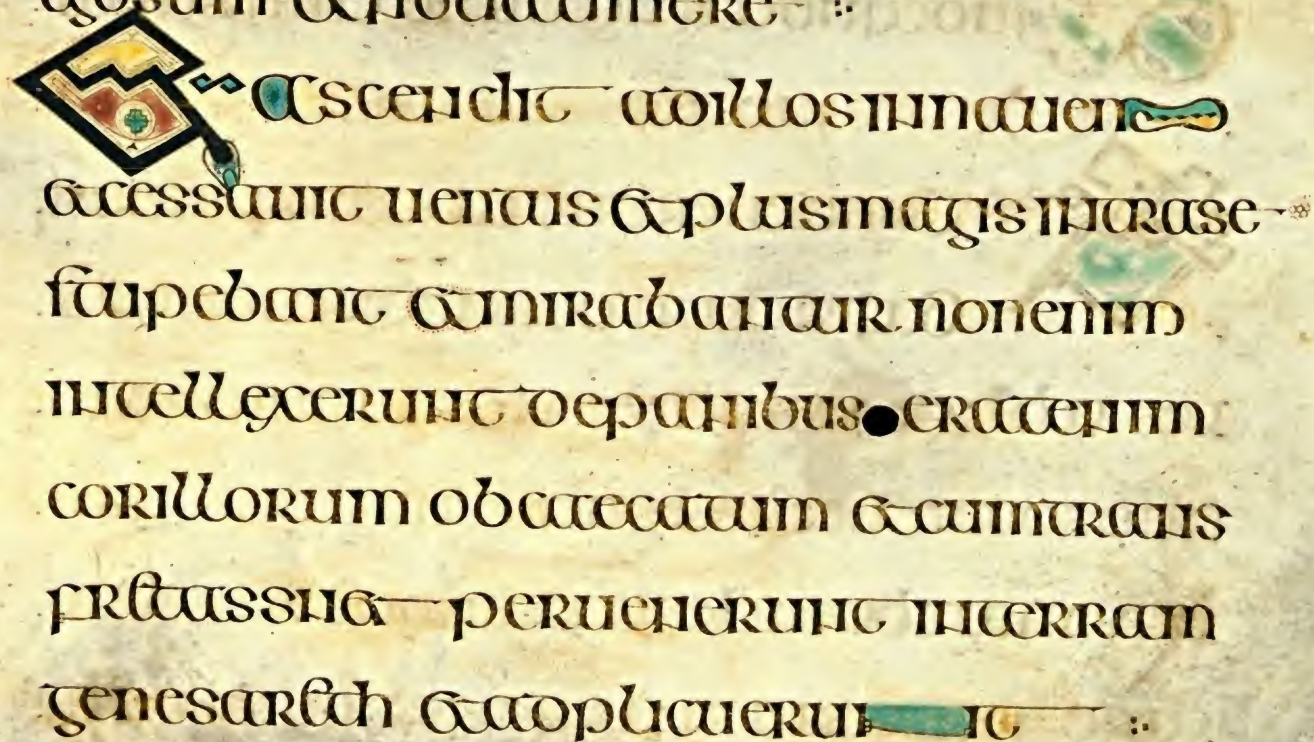 Et ascendit ad illos in nauem
& cessauit uentus & plus magis intra se
stupebant & mirabantur non enim
intellexerunt de panibus erat enim
cor illorum obcaecatum & cum trans
peruenerunt in terram
genesar&h & adplicuerunt